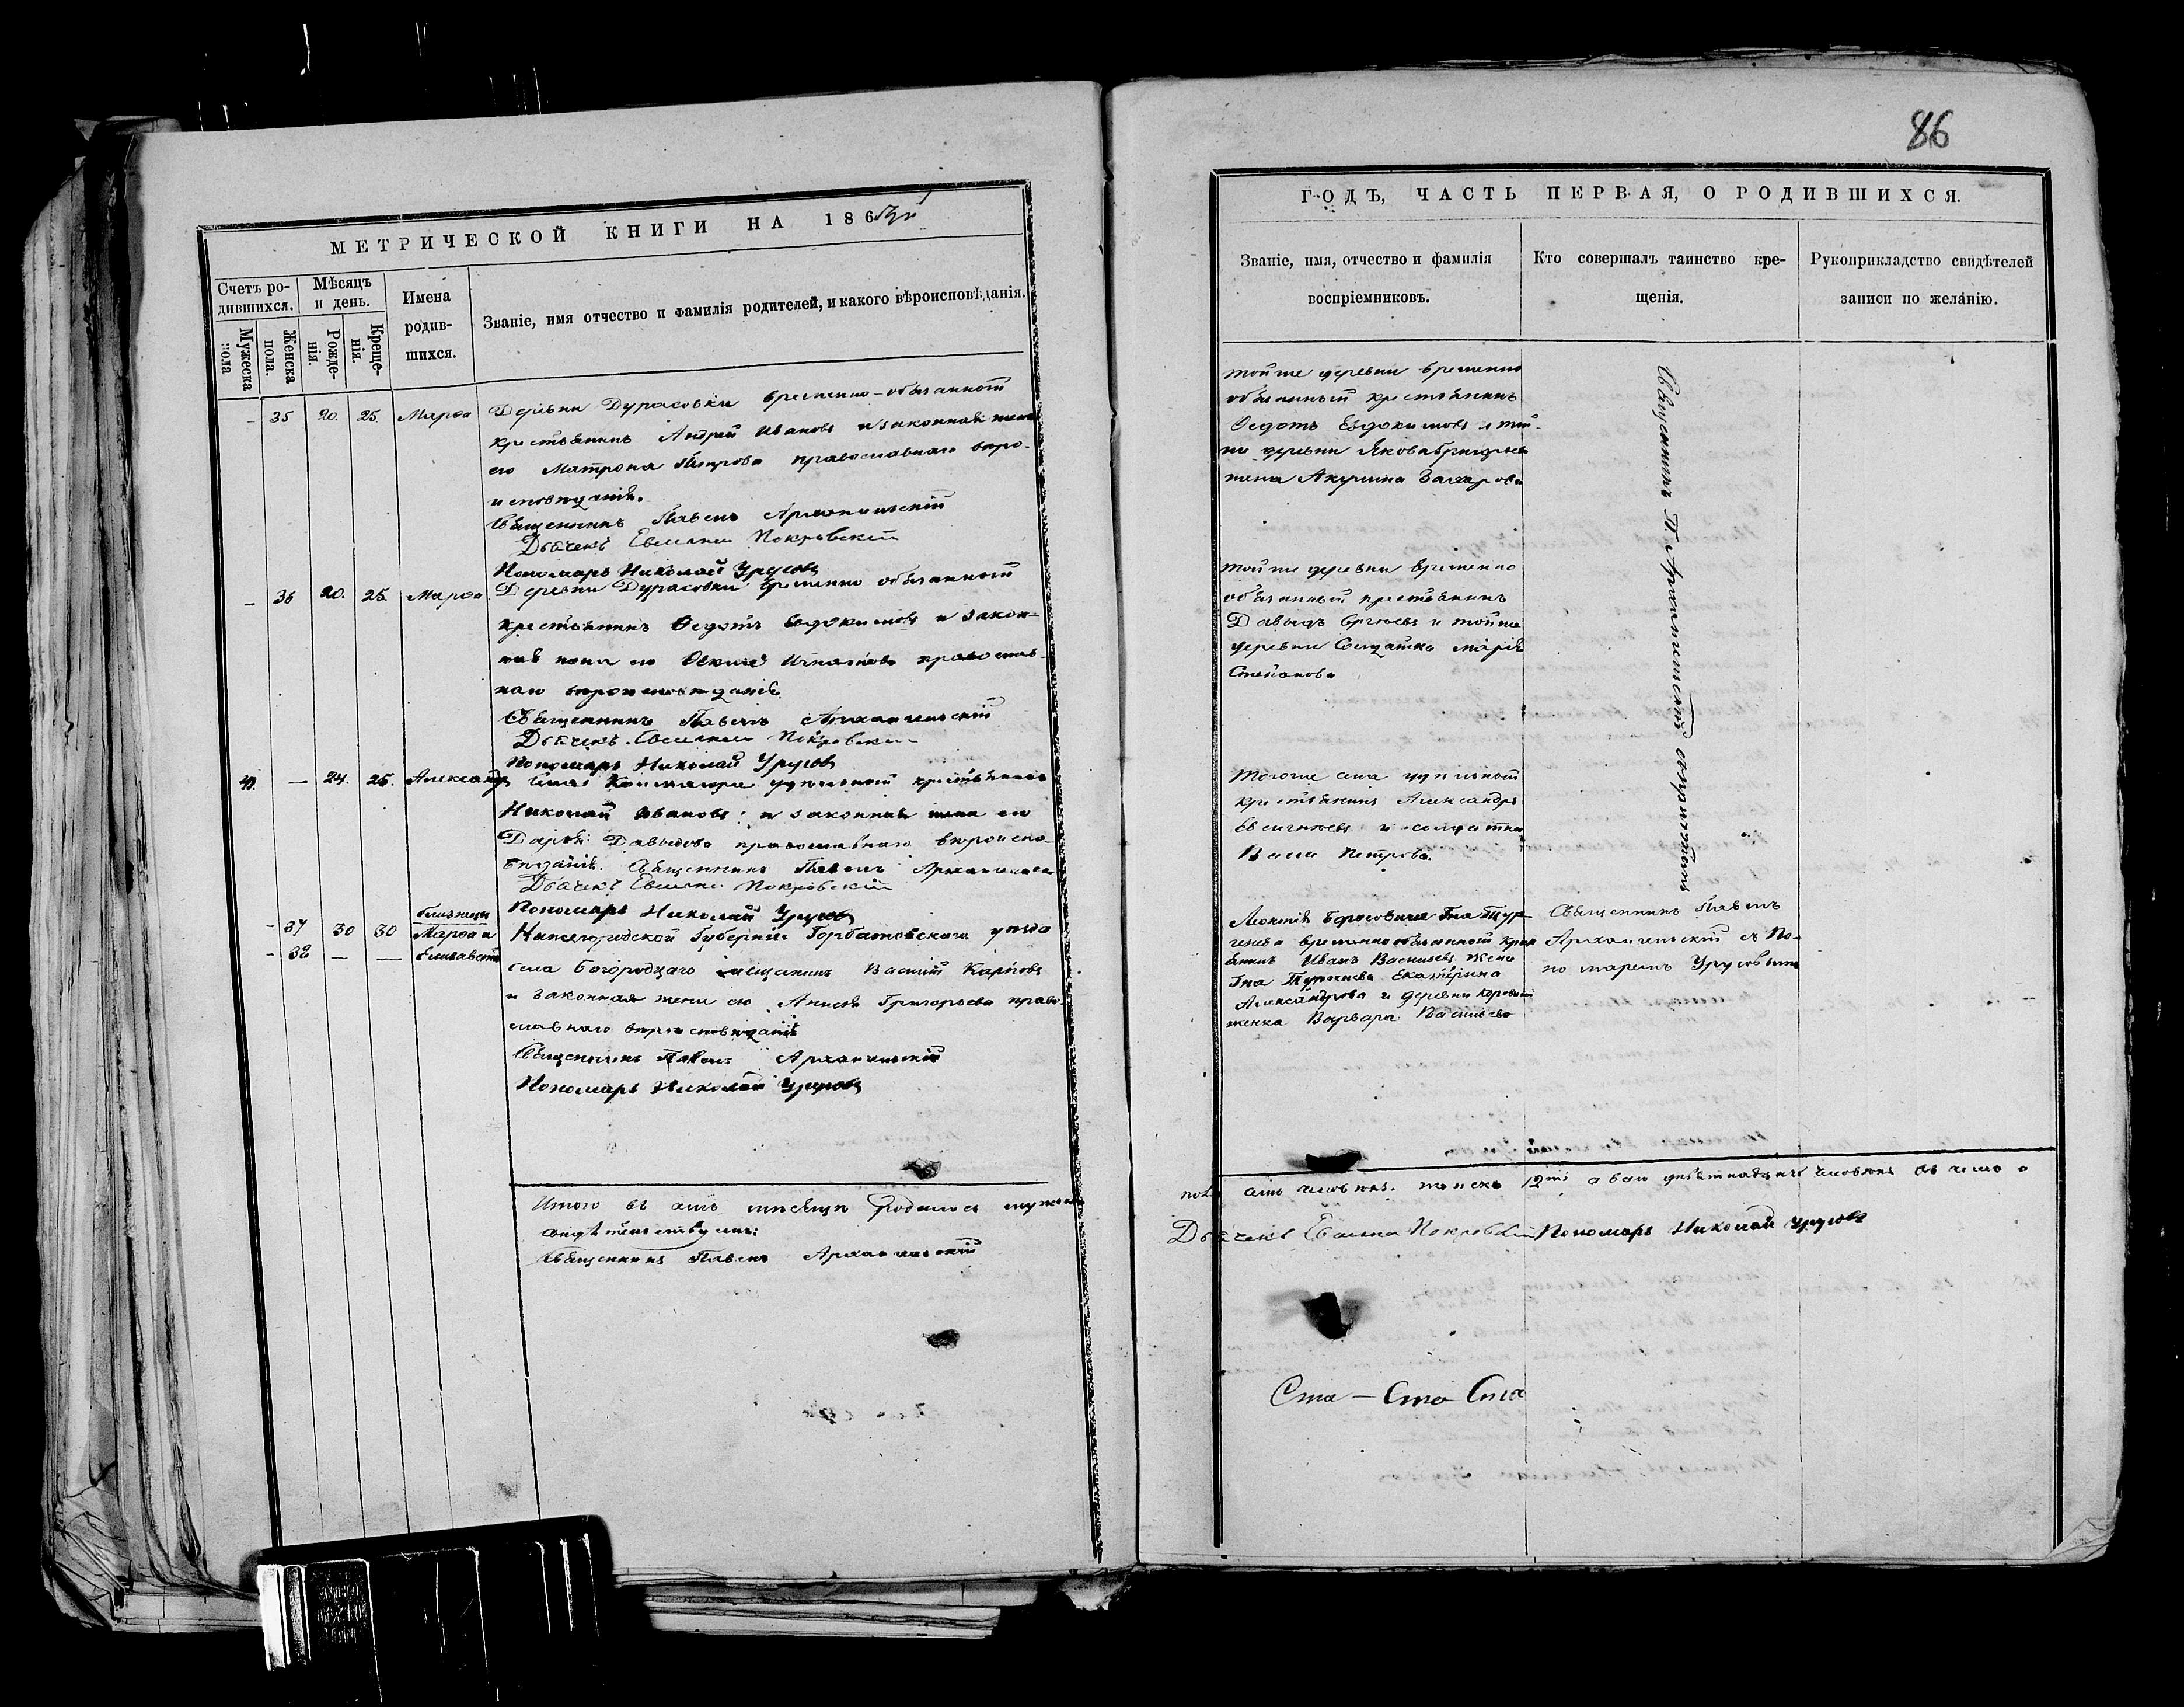 86
МЕТРИЧЕСКОЙ КНИГИ НА 1863й
Счетъ ро-
дившихся.
Мѣсяцъ
и день.
Имена
родив-
шихся.
Званіе, имя отчество и фамилія родителей, и какого вѣроисповѣданія.
Мужеска
пола
Женска
пола.
Рожде-
нія.
Креще-
нія.
– 35 20. 25. Марѳа Деревни Дурасовки временно-обязанной
крестьянинъ Андрей Ивановъ и законная жена
его Матрона Петрова православнаго вѣро-
исповѣданія.
Священникъ Павелъ Архангельскій
Дьячекъ Покровскій
Пономарь Николай Урусовъ
– 36 20. 25. Марѳа Деревни Дурасовки временно обязанной
крестьянинъ Ѳедотъ Евдокимовъ и закон-
ная жена его Игнатова православ-
наго вѣроисповѣданія.
Священникъ Павелъ Архангельскій
Дьячекъ Покровскій
Пономарь Николай Урусовъ
40. — 24. 25. Александръ Села удѣльной крестьянинъ
Николай Ивановъ и законная жена его
Дарья Давыдова православнаго вѣроиспо-
вѣданія. Священникъ Павелъ Архангельскій
Дьячекъ Покровскій
Пономарь Николай Урусовъ
близнецы
– 37 30 30 Марѳа и Нижегородской Губерніи Горбатовскаго уѣзда
– 38 — — Елизавета села Богородцаго мещанинъ Василій Карповъ
и законная жена его Анисья Григорьева право-
славнаго вѣроисповѣданія
Священникъ Павелъ Архангельскій
Пономарь Николай Урусовъ
Итого въ семъ мѣсяцѣ родилось мужска
свидѣтельствуемъ:
Священникъ Павелъ Архангельскій
ГОДЪ, ЧАСТЬ ПЕРВАЯ, О РОДИВШИХСЯ.
Званіе, имя, отчество и фамилія
воспріемниковъ.
Кто совершалъ таинство кре-
щенія.
Рукоприкладство свидѣтелей
записи по желанію.
тойже деревни временно
обязанный крестьянинъ
Ѳедотъ Евдокимовъ и той-
же деревни Якова Григорьева
жена Акулина Захарова
тойже деревни временно
обязанный крестьянинъ
Давыдъ Сергѣевъ и тойже
деревни Солдатка Марія
Степанова
Тогоже села удѣльной
крестьянинъ Александръ
и солдатка
Петрова.
Священникъ П. Архангельскій
Борисовича Гна Тур-
генева временнообязанной крест-
янинъ Иванъ Васильевъ жена
Гна Тургенева Екатерина
Александрова и деревни
женка Варвара Васильева
Священникъ Павелъ
Архангельскій съ По-
номаремъ Урусовымъ
пола семь человѣкъ. женска 12ть а всего девятнадцать человѣкъ въ чемъ и
Дьячекъ Покровскій Пономарь Николай Урусовъ